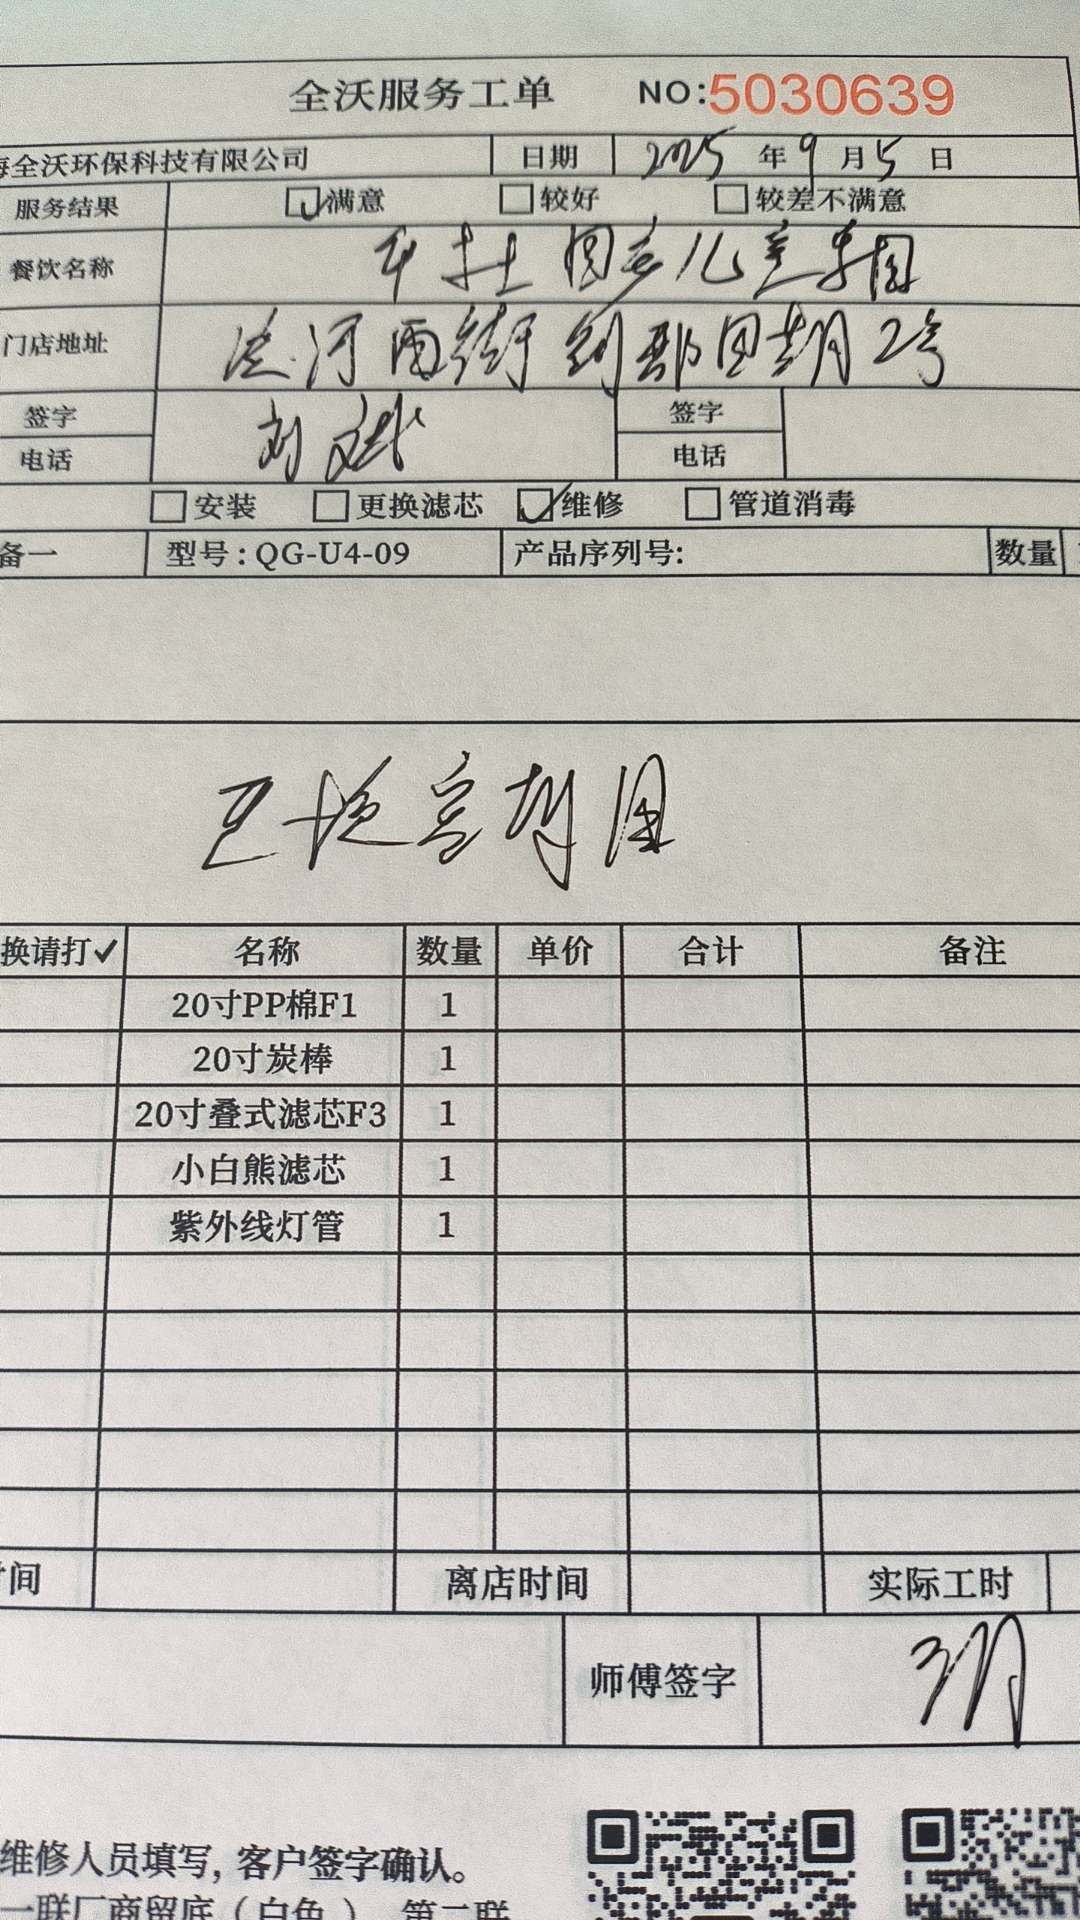 全沃服务工单 NO:5030639
海全沃环保科技有限公司 日期 2025年9月5日
服务结果 满意 较好 较差不满意
餐饮名称 儿童乐园
门店地址 河西街 2号
签字 签字
电话 电话
安装 更换滤芯 维修 管道消毒
备一 型号:QG-U4-09 产品序列号: 数量
换请打✓ 名称 数量 单价 合计 备注
20寸PP棉F1 1
20寸炭棒 1
20寸叠式滤芯F3 1
小白熊滤芯 1
紫外线灯管 1
时间 离店时间 实际工时
师傅签字
维修人员填写,客户签字确认。
一联厂商留底(白色) 第二联